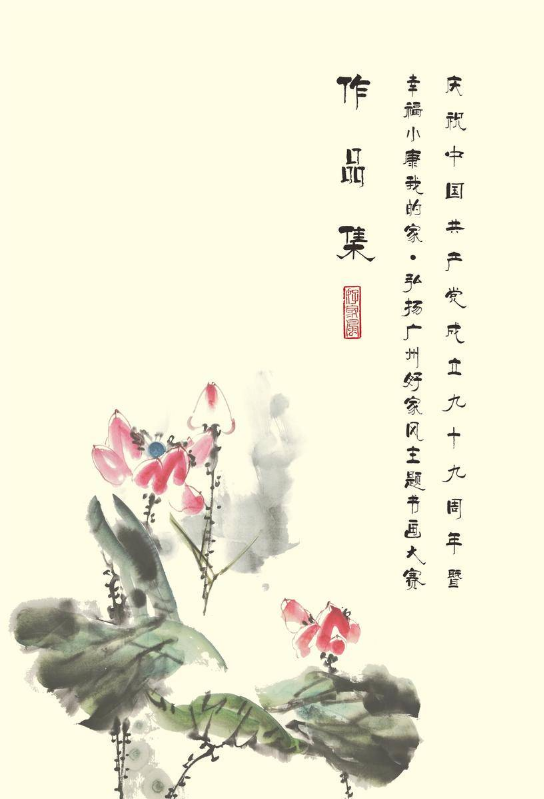 庆祝中国共产党成立九十九周年暨
幸福小康我的家·弘扬广州好家风主题书画大赛
作品集
好家风